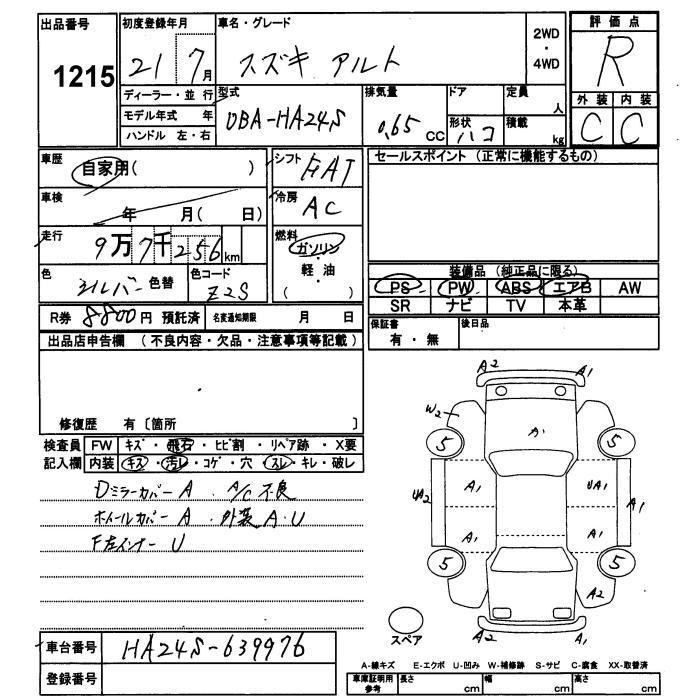 出品番号 初度登録年月 車名・グレード 2WD ・ 4WD 評価点
1215 21 7月 スズキ アルト R
ディーラー・並行 型式 排気量 ドア 定員 人 外装 内装
モデル年式 年 DBA-HA24S 0.65 CC 形状 ハコ 積載 kg C C
ハンドル 左・右
車歴 自家用( ) シフト FAT セールスポイント (正常に機能するもの)
車検 年 月( 日) 冷房 AC
走行 9万7千256km 燃料 ガソリン・軽油 ( )
色 シルバー 色替 色コード Z2S
装備品 (純正品に限る)
PS PW ABS エアB AW
SR ナビ TV 本革
R券 8800円 預託済 名変通知期限 月 日 保証書 有・無 後日品
出品店申告欄 (不良内容・欠品・注意事項等記載)
修復歴 有〔箇所 〕
検査員 FW キズ・飛石・ヒビ割・リペア跡・X要
記入欄 内装 キズ・汚レ・コゲ・穴・スレ・キレ・破レ
Dミラーカバー A . A/C 不良
ホイールカバー A . 外装 A.U
F左インナー U
A2 A1
W2
5 A1 5
UA2 A1 UA1 A1
A1 A1
5 5
A2
A2 A1
スペア
車台番号 HA24S-639976
登録番号
A-線キズ E-エクボ U-凹み W-補修跡 S-サビ C-腐食 XX-取替済
車庫証明用参考 長さ cm 幅 cm 高さ cm